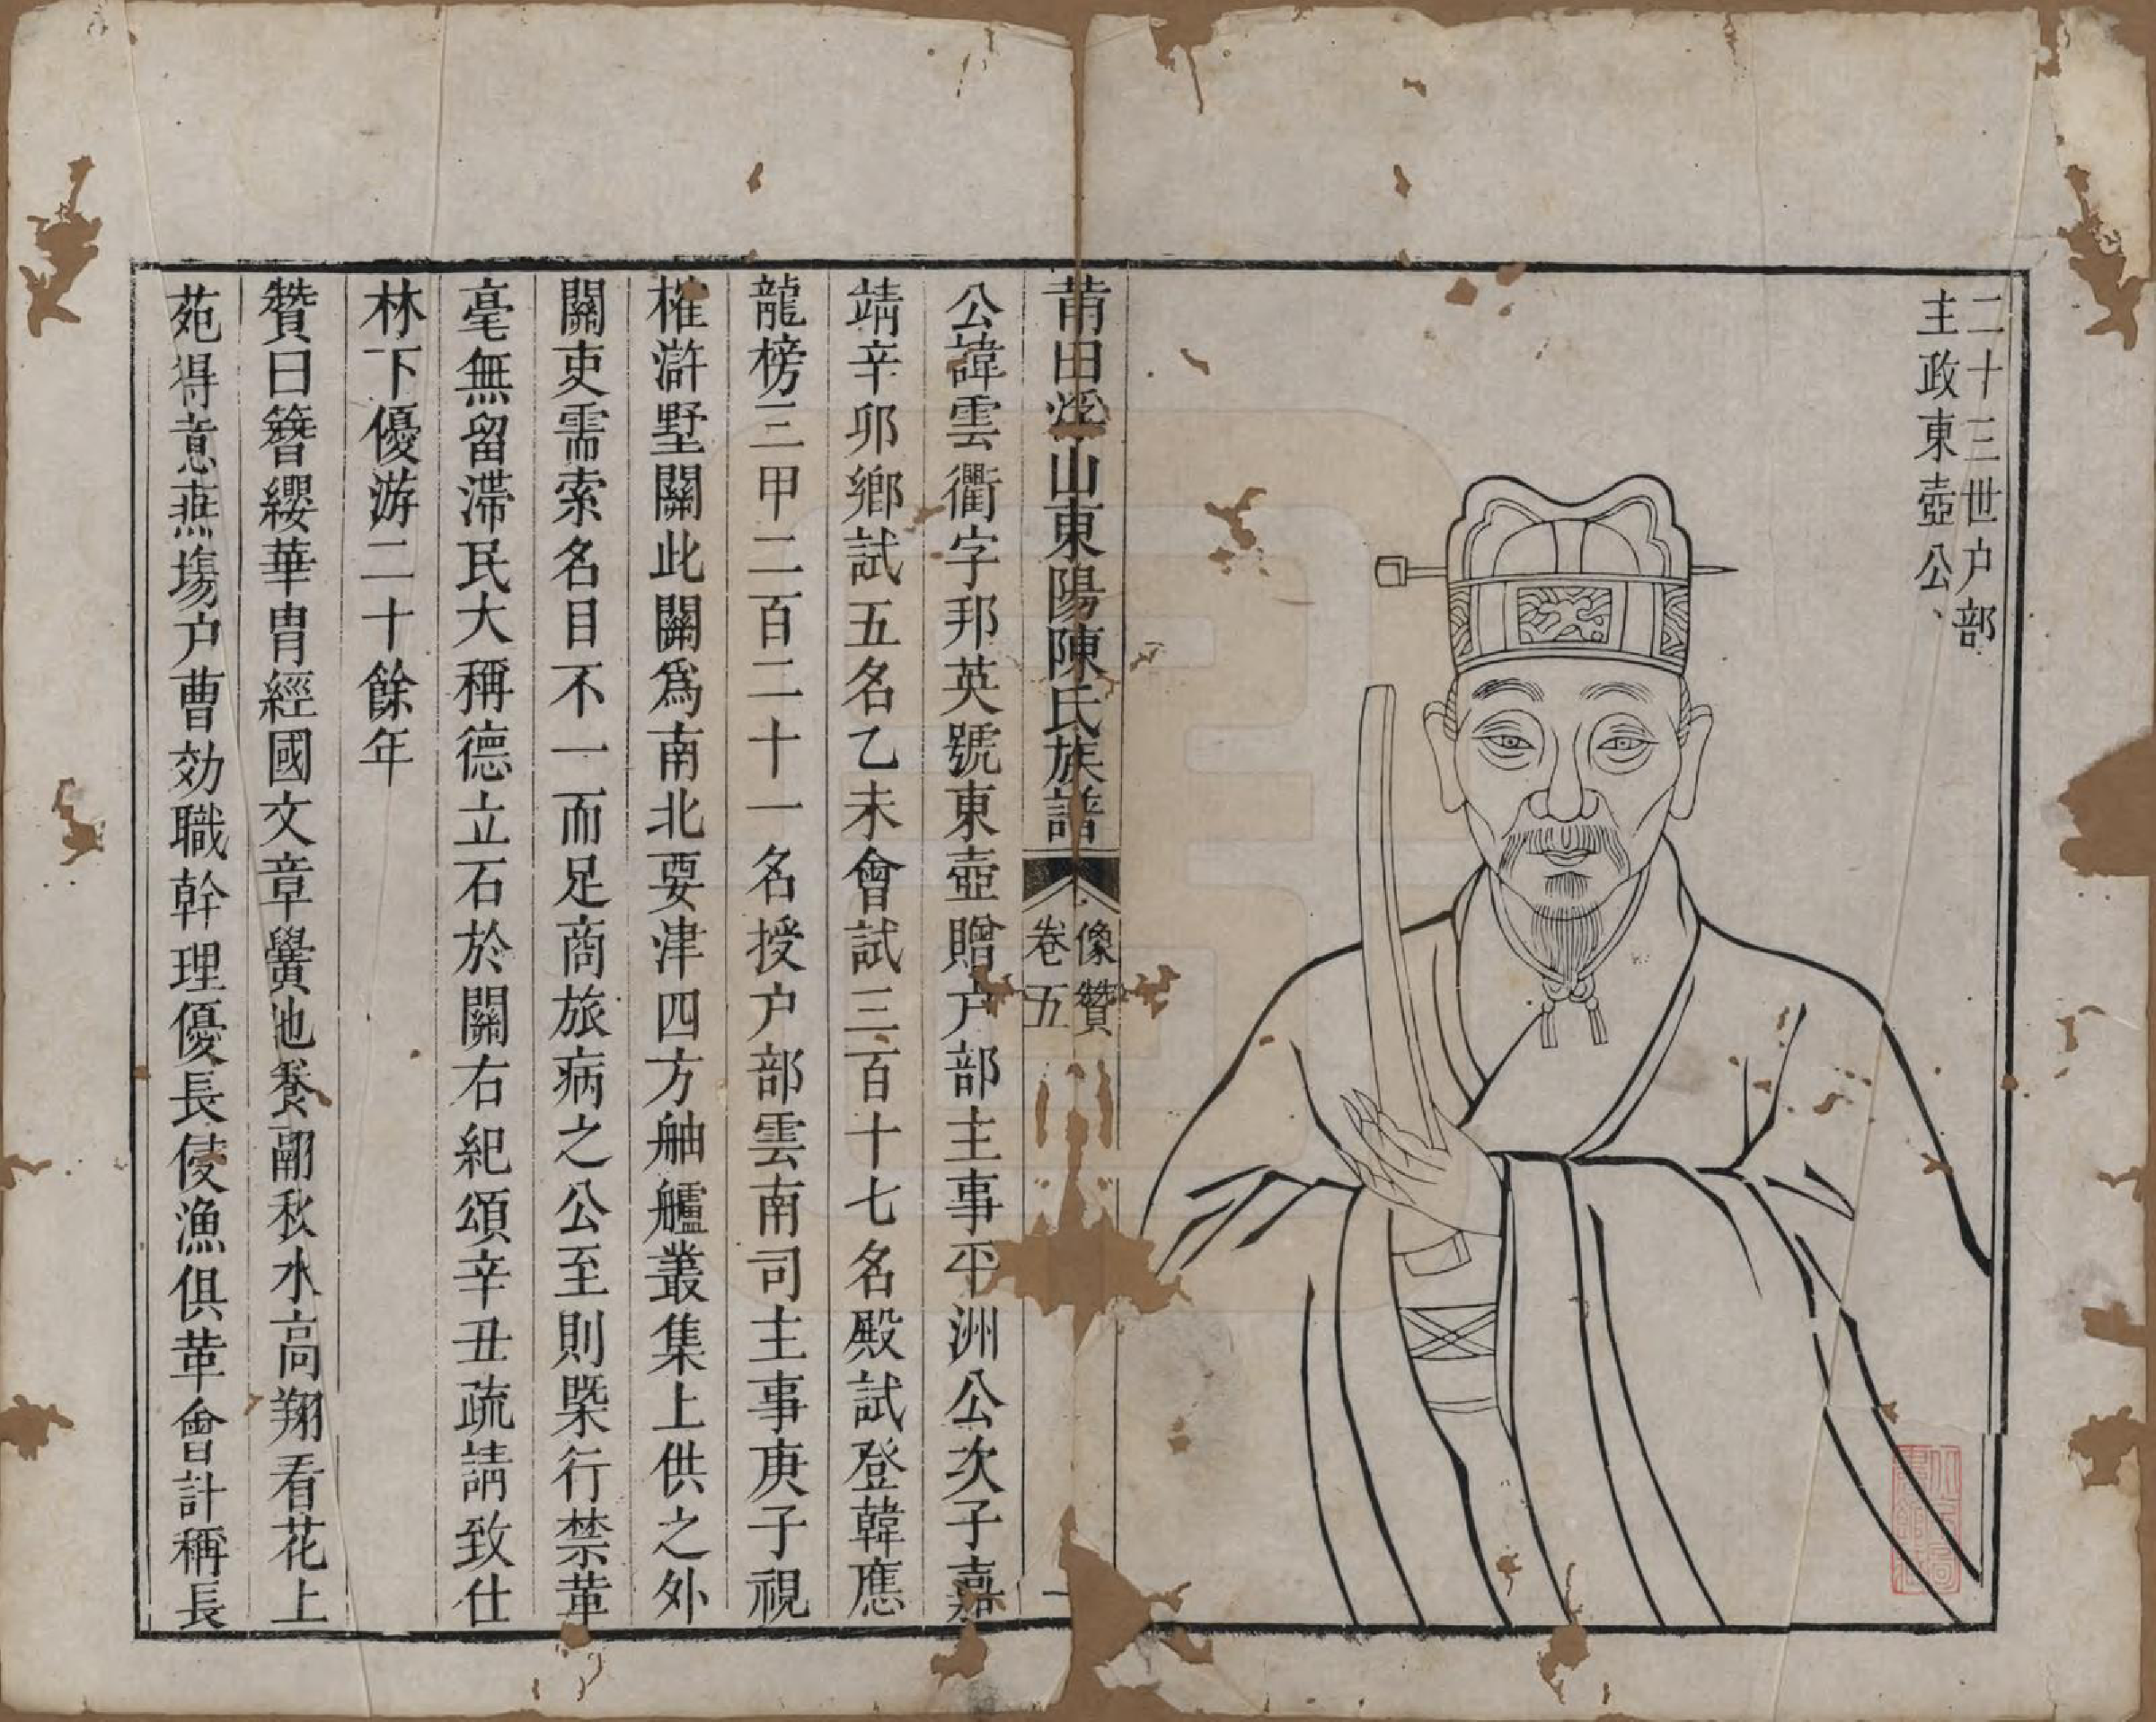 二十三世户部
主政東壺公
莆田涇山東陽陳氏族譜
像贊
卷五
一
公諱雲衢字邦英號東壺贈户部主事平洲公次子嘉
靖辛卯鄉試五名乙未會試三百十七名殿試登韓應
龍榜三甲二百二十一名授户部雲南司主事庚子視
榷滸墅關此關爲南北要津四方舳艫叢集上供之外
關吏需索名目不一而足商旅病之公至則槩行禁革
毫無留滯民大稱德立石於關右紀頌辛丑疏請致仕
林下優游二十餘年
贊曰簪纓華胄經國文章黌池養翮秋水高翔看花上
苑得意燕塲户曹効職幹理優長侵漁俱革會計稱長